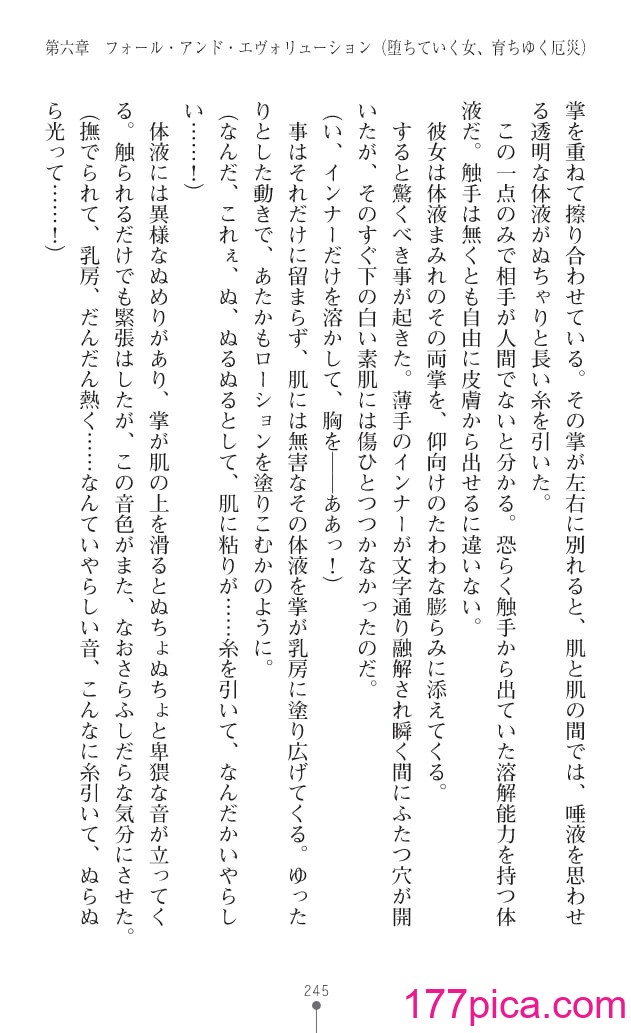 第六章　フォール・アンド・エヴォリューション（堕ちていく女、育ちゆく厄災）
掌を重ねて擦り合わせている。その掌が左右に別れると、肌と肌の間では、唾液を思わせ
る透明な体液がぬちゃりと長い糸を引いた。
　この一点のみで相手が人間でないと分かる。恐らく触手から出ていた溶解能力を持つ体
液だ。触手は無くとも自由に皮膚から出せるに違いない。
　彼女は体液まみれのその両掌を、仰向けのたわわな膨らみに添えてくる。
　すると驚くべき事が起きた。薄手のインナーが文字通り融解され瞬く間にふたつ穴が開
いたが、そのすぐ下の白い素肌には傷ひとつつかなかったのだ。
（い、インナーだけを溶かして、胸を――ああっ！）
　事はそれだけに留まらず、肌には無害なその体液を掌が乳房に塗り広げてくる。ゆった
りとした動きで、あたかもローションを塗りこむかのように。
（なんだ、これぇ、ぬ、ぬるぬるとして、肌に粘りが……糸を引いて、なんだかいやらし
い……！）
　体液には異様なぬめりがあり、掌が肌の上を滑るとぬちょぬちょと卑猥な音が立ってく
る。触られるだけでも緊張はしたが、この音色がまた、なおさらふしだらな気分にさせた。
（撫でられて、乳房、だんだん熱く……なんていやらしい音、こんなに糸引いて、ぬらぬ
ら光って……！）
245
177pica.com